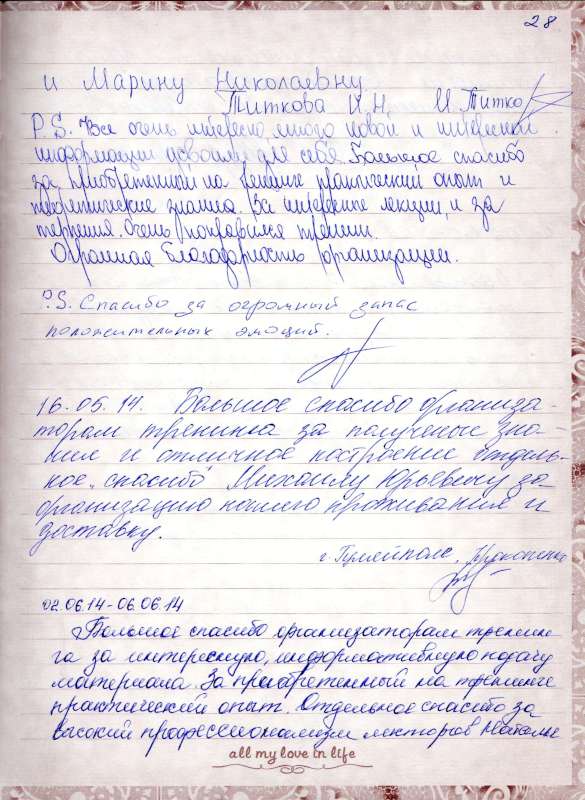 28
и Марину Николаевну
Титкова И.Н. И.Титко
P.S. Все очень интересно, много новой и интересной
информации освоили для себя. Большое спасибо
за приобретенный на тренинге практический опыт и
теоретические знания. За интересные лекции, и за
терпения. Очень понравился тренинг.
Огромная благодарность организации.
P.S. Спасибо за огромный запас
положительных эмоций.
16.05.14. Большое спасибо организа-
торам тренинга за получены зна-
ния и отличное настроение отдель-
ное спасибо Михаилу Юрьевичу за
организацию нашего проживания и
доставку.
г. Гуляйполе, Прокопенко
02.06.14-06.06.14
Большое спасибо организаторам тренин-
га за интересную, информативную подачу
материала. За приобретенный на тренинге
практический опыт. Отдельное спасибо за
высокий профессионализм лекторов Наталье
all my love in life